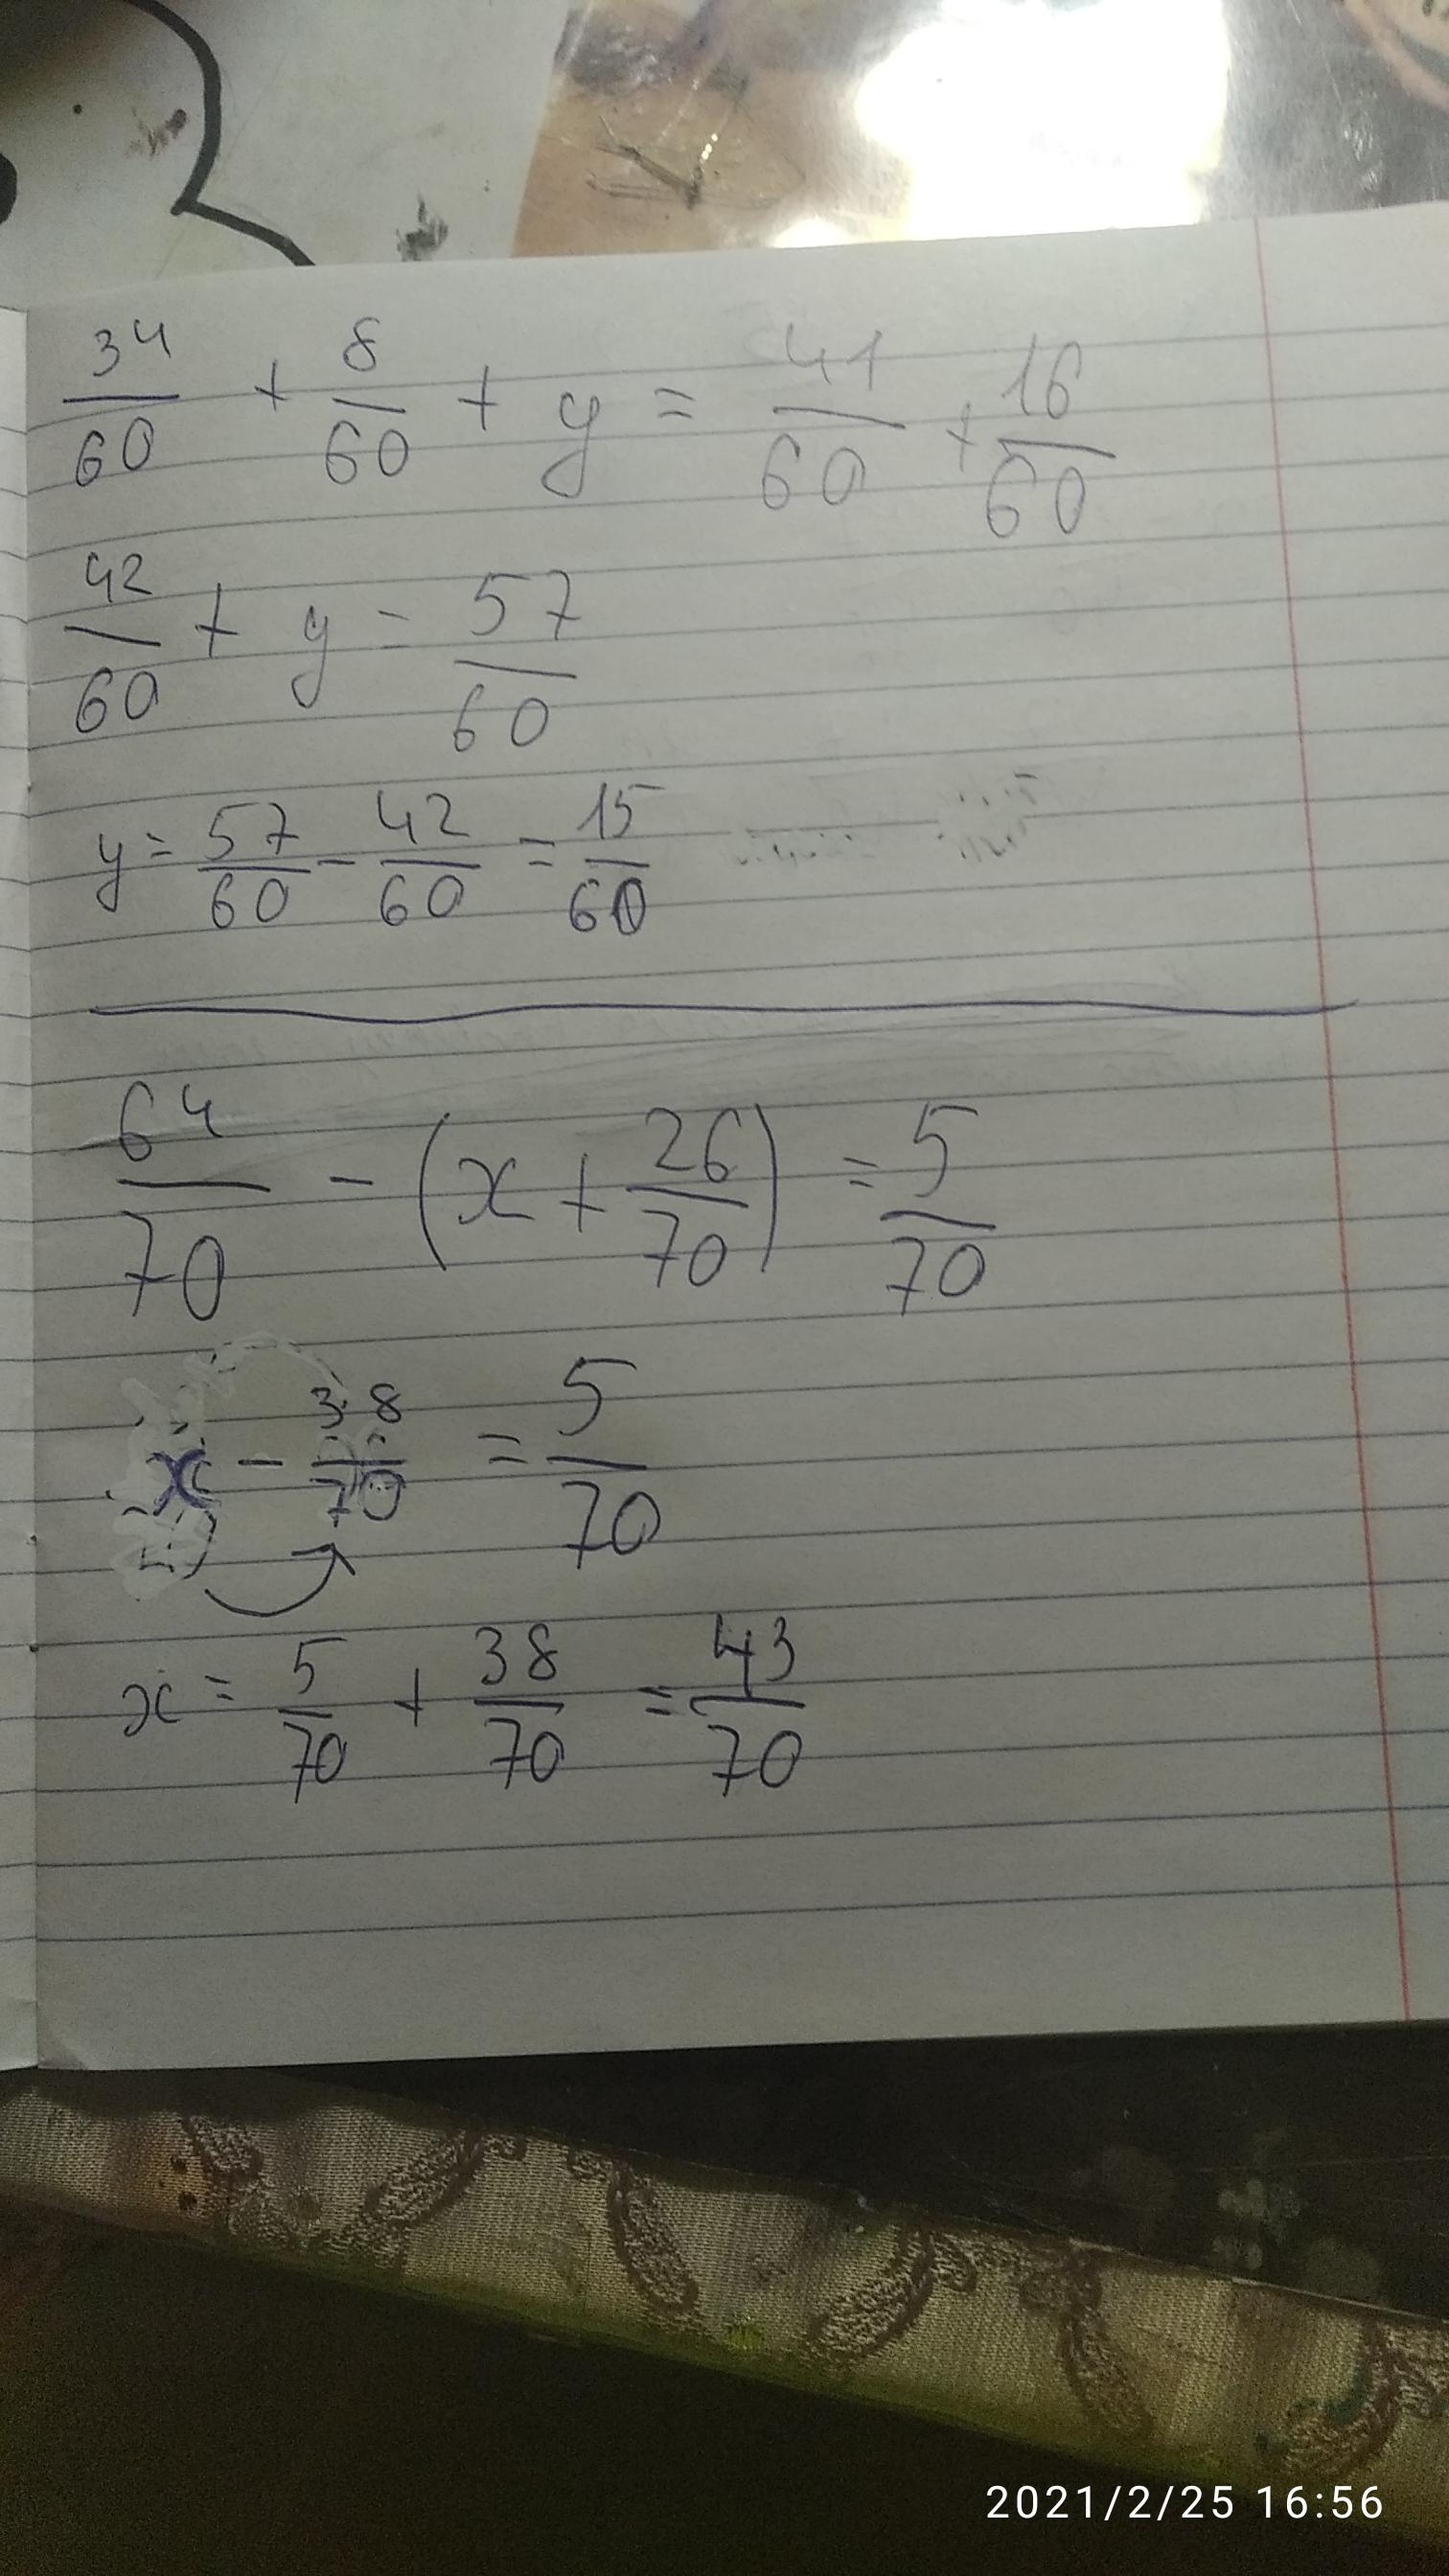 34/60 + 8/60 + y = 41/60 + 16/60
42/60 + y = 57/60
y = 57/60 - 42/60 = 15/60
64/70 - (x + 26/70) = 5/70
x - 38/70 = 5/70
x = 5/70 + 38/70 = 43/70
2021/2/25 16:56